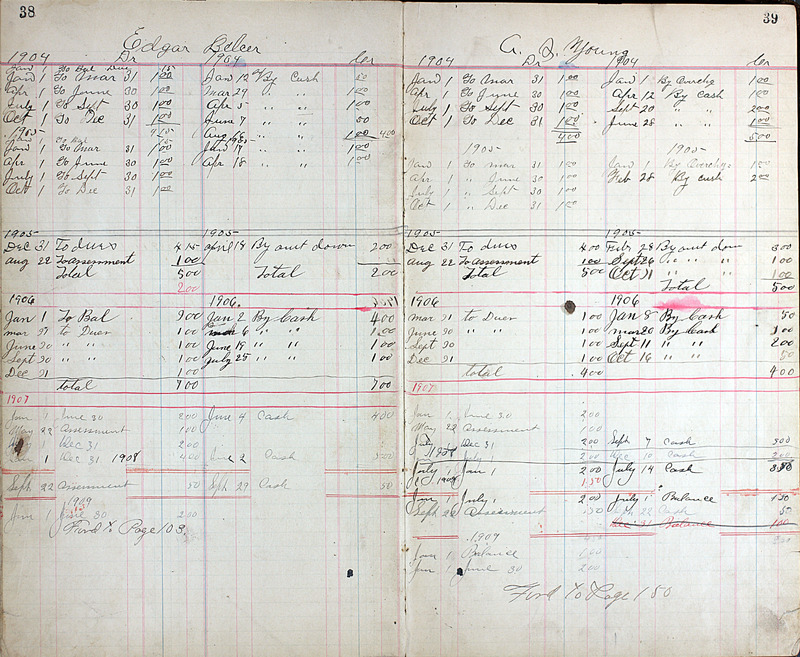 38
Edgar Beleer
1904 Dr 1904 Cr
Jan 1 To Bal Due .15
Jan 1 To Mar 31 1.00 Jan 12 By Cash 50
Apr 1 To June 30 1.00 Mar 29 " " 1.00
July 1 To Sept 30 1.00 Apr 5 " " 1.00
Oct 1 To Dec 31 1.00 June 7 " " 50
1905 4.15 Aug 16 " " 1.00 4.00
Jan 1 To Bal .15 1905
Jan 1 To Mar 31 1.00 Jan 17 " " 1.00
Apr 1 To June 30 1.00 Apr 18 " " 1.00
July 1 To Sept 30 1.00
Oct 1 To Dec 31 1.00
1905 1905
Dec 31 To dues 4 15 April 18 By amt down 2 00
Aug 22 To assessment 1 00
Total 5 00 Total 2 00
2 00
1906 1906
Jan 1 To Bal 3 00 Jan 2 By Cash 4 00
Mar 31 to Dues 1 00 6 " " 1 00
June 30 " " 1 00 June 19 " " 1 00
Sept 30 " " 1 00 July 25 " " 1 00
Dec 31 1 00
total 7 00 7 00
1907
Jan 1 June 30 2 00 June 4 Cash 4 00
May 22 Assessment 1 00
Dec 31 2 00
1 Dec 31 1908 4 00 June 2 Cash
Sept 22 Assessment 50 Sept 29 Cash 50
1909
Jan 1 June 30 2 00
Ford to Page 103.
39
A. L. Young
1904 Dr 1904 Cr
Jan 1 To Mar 31 1.00 Jan 1 By Overchg 1 00
Apr 1 To June 30 1.00 Apr 12 By Cash 1 00
July 1 To Sept 30 1.00 Sept 20 " " 2 00
Oct 1 To Dec 31 1.00 June 28 " " 1 00
4 00 5 00
1905 1905
Jan 1 To Mar 31 1.00 Jan 1 By Overchg 1 00
Apr 1 " June 30 1.00 Feb 28 By Cash 2 00
July 1 " Sept 30 1.00
Oct 1 " Dec 31 1.00
1905 1905
Dec 31 To dues 4 00 Feb 28 By amt down 3 00
Aug 22 To assessment 1 00 Sept 26 " " " 1 00
Total 5 00 Oct 31 " " " 1 00
Total 5 00
1906 1906
Mar 31 to Dues 1 00 Jan 8 By Cash 50
June 30 " " 1 00 Mar 20 By Cash 1 00
Sept 30 1 00 Sept 11 " " 2 00
Dec 31 1 00 Oct 16 " " 50
total 4 00 4 00
1907
Jan 1 June 30 2 00
May 22 Assessment 1 00
July 1 Dec 31 2 00 Sept 7 Cash 3 00
1908 July 1 2 00 Dec 10 Cash 2 00
July 1 Jan 1 2 00 July 14 Cash
1908 1 50
Jan 1 July 1 2 00 July 1 Balance 1 50
Sept 22 Assessment 50 Sept 22 Cash 50
Dec 31 Balance 1 00
1909
Jan 1 Balance
Jan 1 June 30 2 00
Ford to Page 150